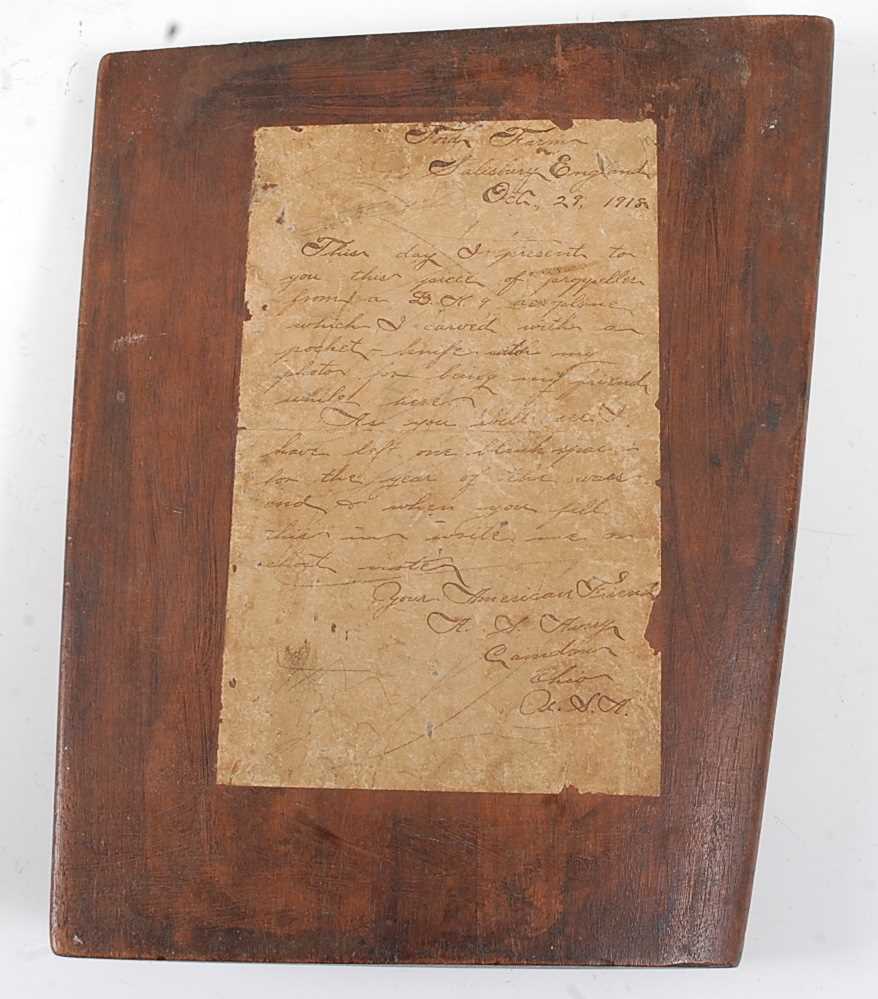 Ford Farm
Salisbury England
Oct. 29, 1918
This day I present to
you this piece of propeller
from a D. H. 9 aeroplane
which I carved with a
pocket-knife with my
photo for being my friend
while here
As you will see I
have left one blank space
for the year of the wars
end & when you fill
this in write me a
short note
Your American Friend
A. Avery
Camden
Ohio
U.S.A.